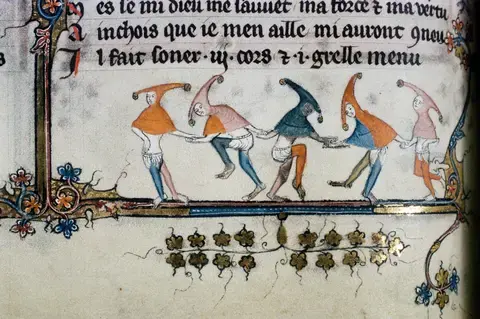 es le mi dieu me lauuet ma force ⁊ ma vertu
inchois que ie men aille mi auront ꝯneu
l fait soner .iij. cors ⁊ .i. grelle menu